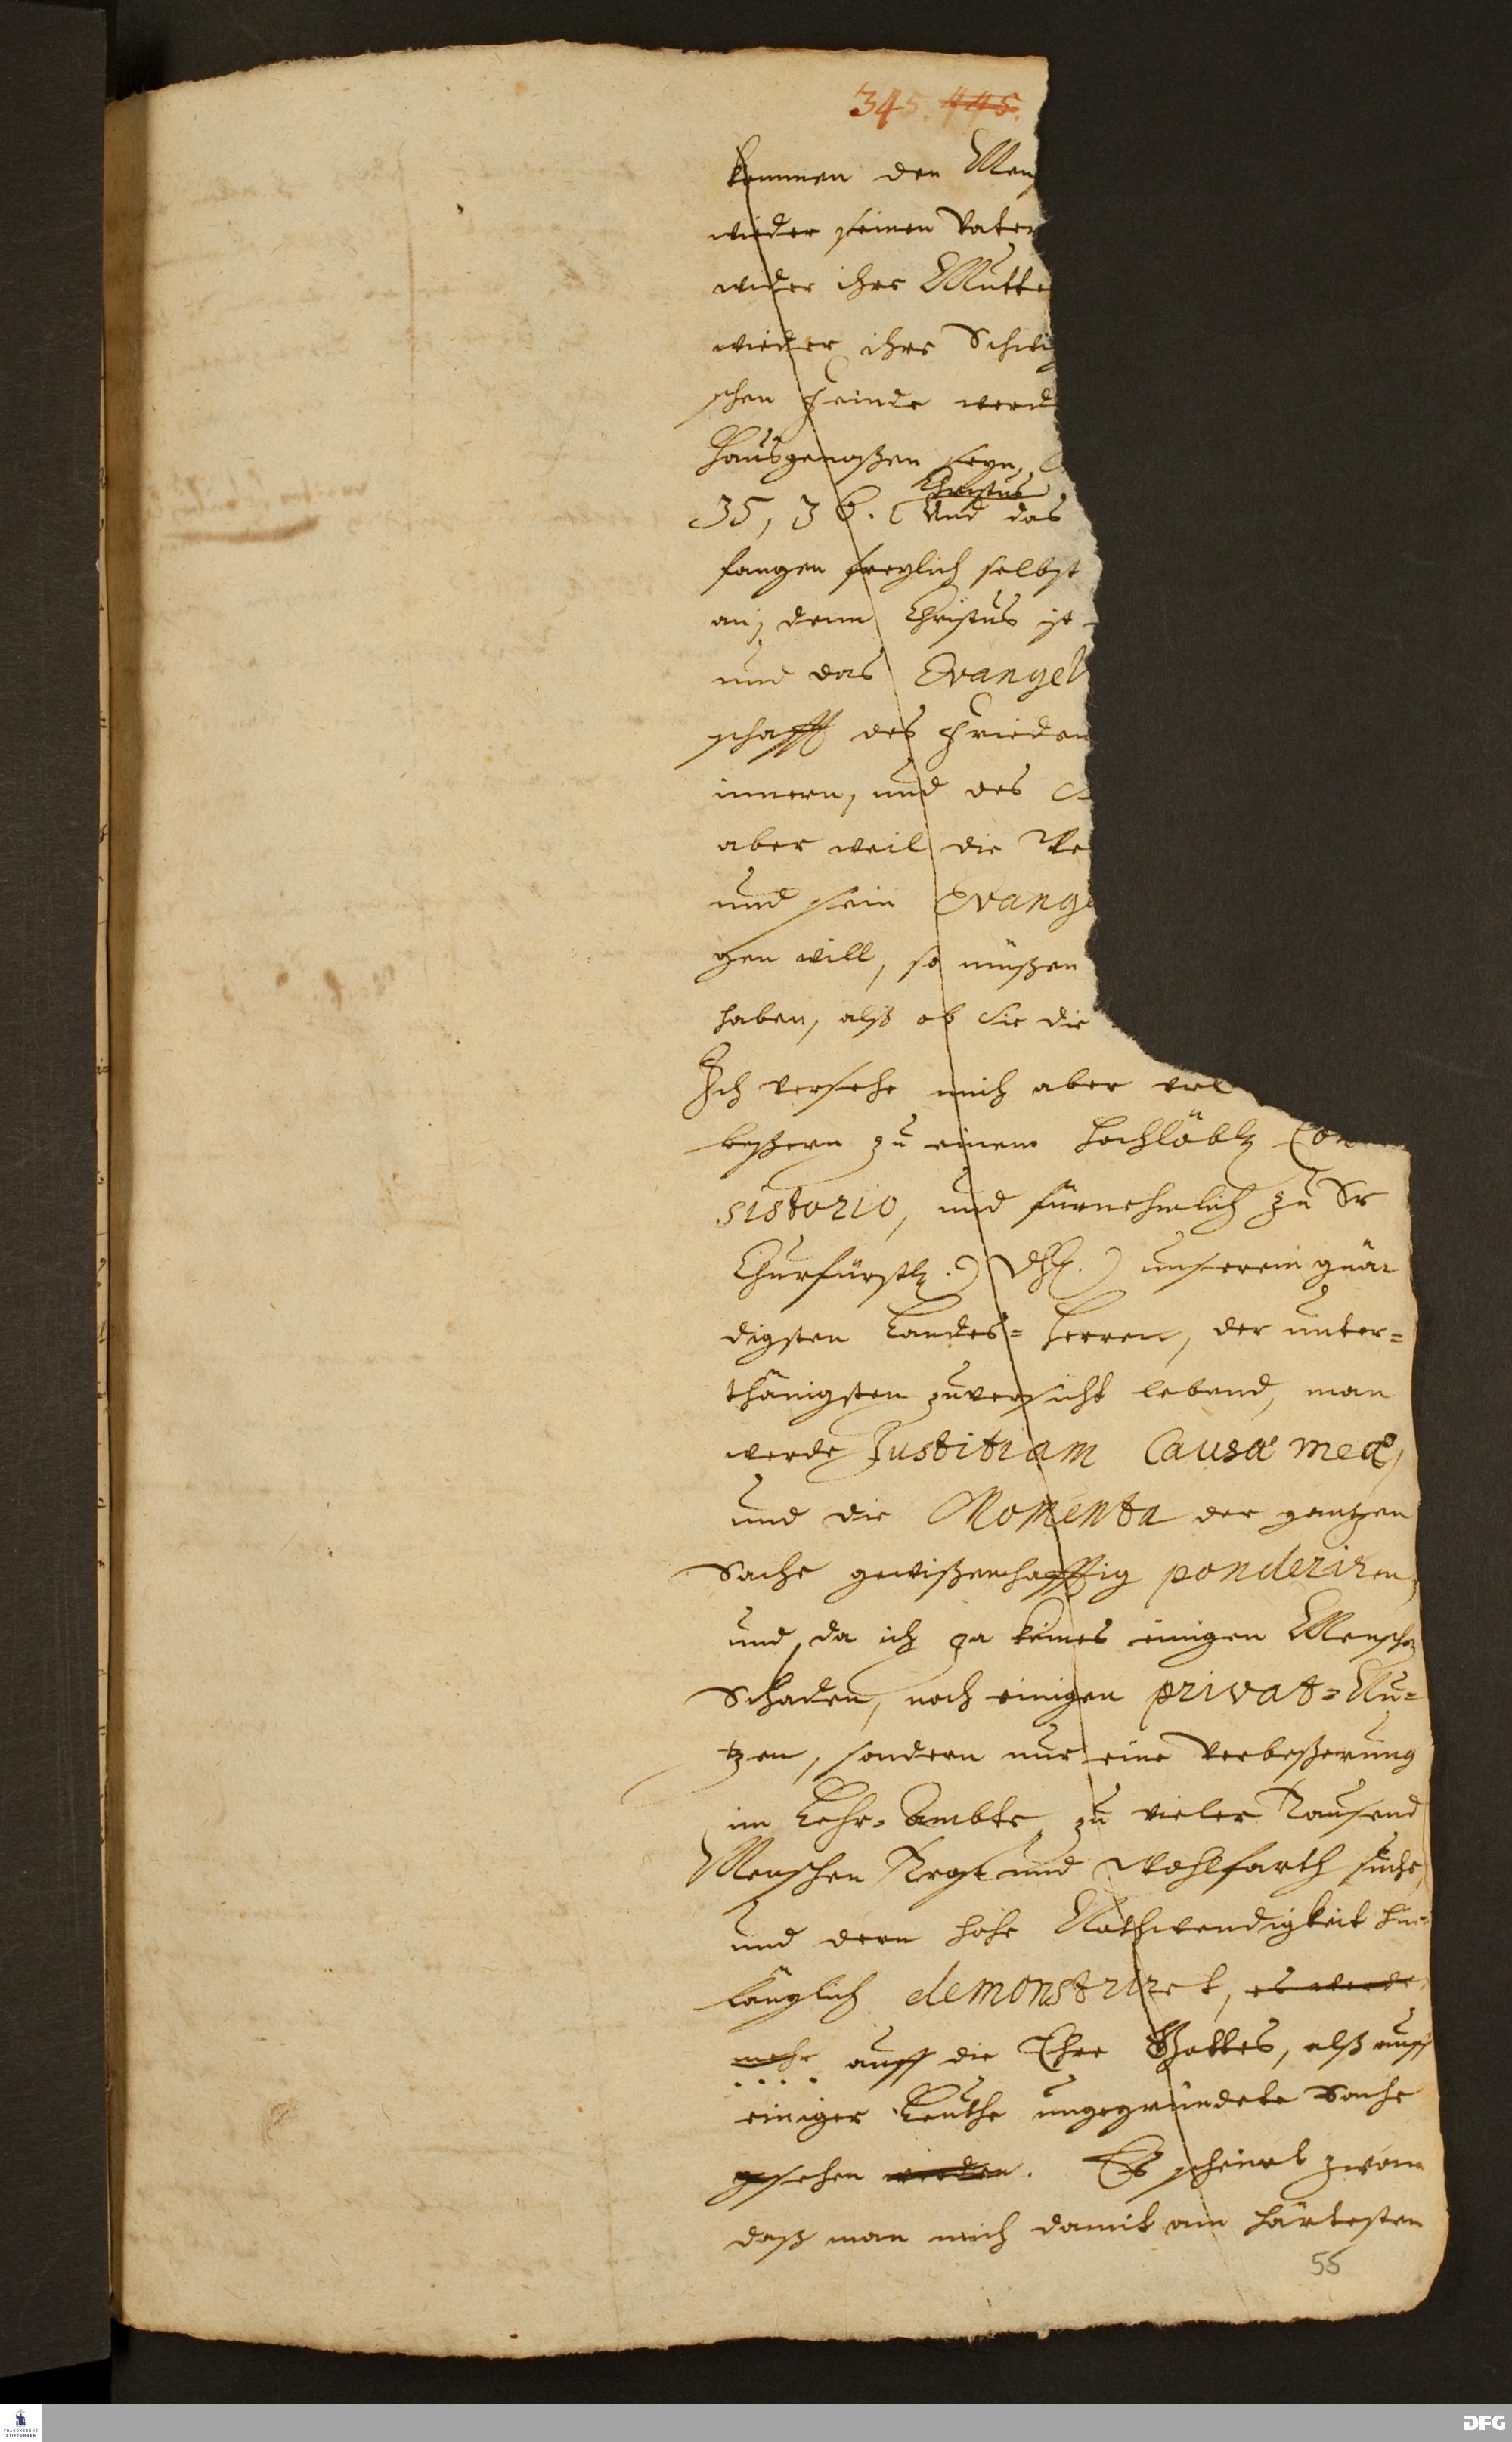 345. 445.
kommen den Mens
wieder seinen Vater
wider ihre Mutte
wieder ihre Schwi
schen Feinde werd
Haußgenoßen seyn,
Christus
35, 36. Und das
fangen freylich selbst
an; denn Christus ist
und das Evangel
schafft des Frieden
innern, und des
aber weil die We
und sein Evange
gen will, so müßen
haben, alß ob Sie die
Ich versehe mich aber viel
beßern zu einem Hochlöbl Con
sistorio, und fürnehmlich zu Sr
Churfürstl. Dhl. unserem gnä
digsten Landes=Herren, der unter=
thänigsten zuversicht lebend, man
werde Justitiam Causæ meæ,
und die Momenta der gantzen
Sache gewißenhafftig ponderiren,
und, da ich ja keines einigen Menschen
Schaden, noch einigen privat=Nu=
tzen, sondern nur eine Verbeßerung
im Lehr=Ambte, zu vieler Tausend
Menschen Trost und Wohlfarth suche,
und dern hohe Nothwendigkeit hin=
länglich demonstriret, es werde
mehr auff die Ehre Gottes, alß auff
einiger Leuthe ungegründete Sache
gesehen werden. Es scheinet zwar
daß man mich damit am härtesten
55
TRANCKESCHE STIFTUNGEN
DFG